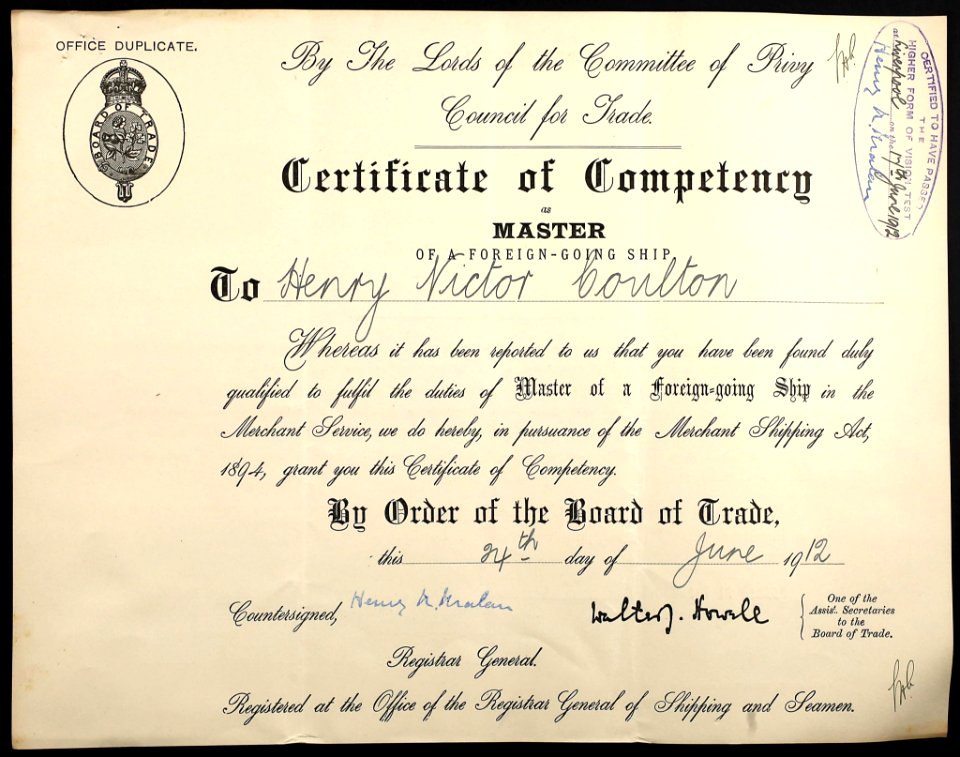 OFFICE DUPLICATE.
BOARD OF TRADE
By The Lords of the Committee of Privy
Council for Trade.
CERTIFIED TO HAVE PASSED
THE
HIGHER FORM OF VISION TEST
at Liverpool on the 17th June 1912
Henry N. Malan
Certificate of Competency
as
MASTER
OF A FOREIGN-GOING SHIP
To Henry Victor Coulton
Whereas it has been reported to us that you have been found duly
qualified to fulfil the duties of Master of a Foreign-going Ship in the
Merchant Service, we do hereby, in pursuance of the Merchant Shipping Act,
1894, grant you this Certificate of Competency.
By Order of the Board of Trade,
this 24th day of June 1912
Countersigned, Henry N. Malan
Walter J. Howell
One of the
Assist. Secretaries
to the
Board of Trade.
Registrar General.
Registered at the Office of the Registrar General of Shipping and Seamen.